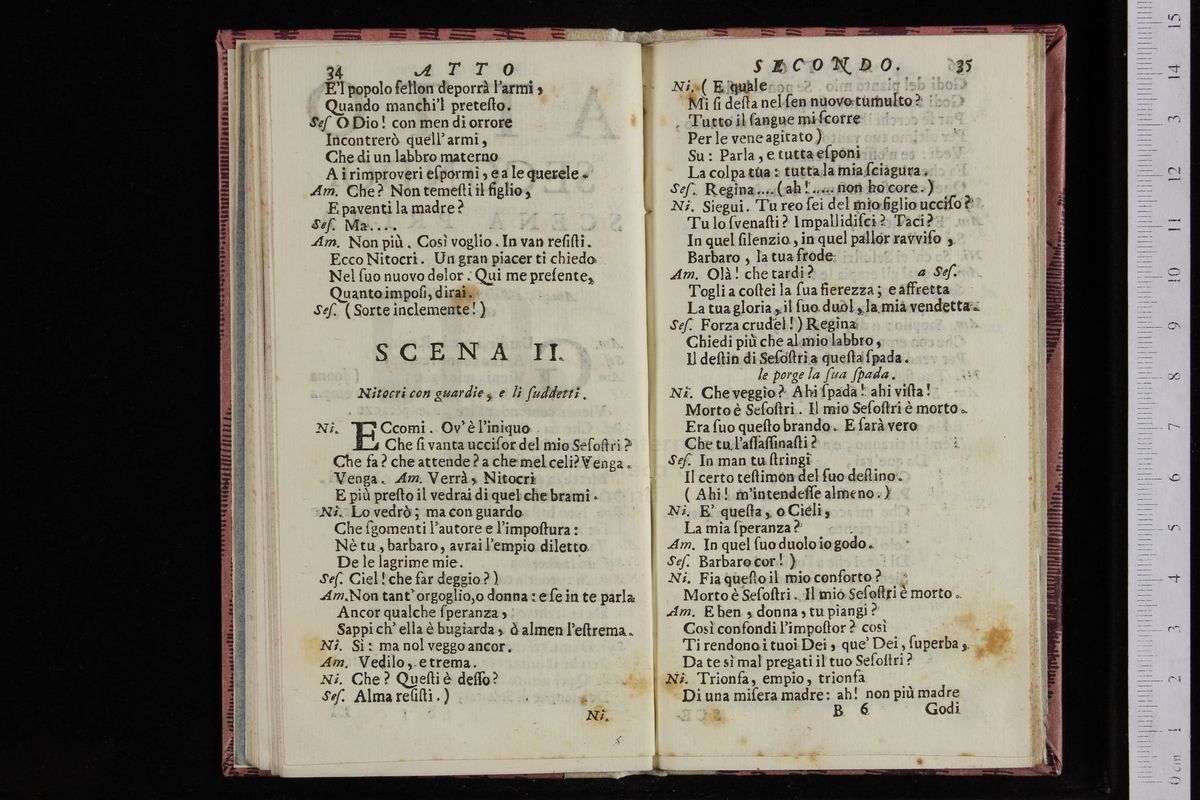 34 ATTO
E'l popolo fellon deporrà l'armi,
Quando manchi'l preteſto.
Seſ O Dio! con men di orrore
Incontrerò quell'armi,
Che di un labbro materno
A i rimproveri eſpormi, e a le querele.
Am. Che? Non temeſti il figlio,
E paventi la madre?
Seſ. Ma....
Am. Non più. Così voglio. In van reſiſti.
Ecco Nitocri. Un gran piacer ti chiedo
Nel ſuo nuovo dolor. Qui me preſente,
Quanto impoſi, dirai.
Seſ. (Sorte inclemente!)
SCENA II.
Nitocri con guardie, e li ſuddetti.
Ni. ECcomi. Ov'è l'iniquo
Che ſi vanta ucciſor del mio Seſoſtri?
Che fa? che attende? a che mel celi? Venga.
Venga. Am. Verrà, Nitocri
E più preſto il vedrai di quel che brami.
Ni. Lo vedrò; ma con guardo
Che ſgomenti l'autore e l'impoſtura:
Nè tu, barbaro, avrai l'empio diletto
De le lagrime mie.
Seſ. Ciel! che far deggio?)
Am. Non tant'orgoglio, o donna: e ſe in te parla
Ancor qualche ſperanza,
Sappi ch'ella è bugiarda, ò almen l'eſtrema.
Ni. Sì: ma nol veggo ancor.
Am. Vedilo, e trema.
Ni. Che? Queſti è deſſo?
Seſ. Alma reſiſti.)
Ni.
SECONDO. 35
Ni. (E quale
Mi ſi deſta nel ſen nuovo tumulto?
Tutto il ſangue mi ſcorre
Per le vene agitato)
Su: Parla, e tutta eſponi
La colpa tua: tutta la mia ſciagura.
Seſ. Regina.... (ah!..... non ho core.)
Ni. Siegui. Tu reo ſei del mio figlio ucciſo?
Tu lo ſvenaſti? Impallidiſci? Taci?
In quel ſilenzio, in quel pallor ravviſo,
Barbaro, la tua frode.
Am. Olà! che tardi? a Seſ.
Togli a coſtei la ſua fierezza; e affretta
La tua gloria, il ſuo duol, la mia vendetta.
Seſ. Forza crudel!) Regina
Chiedi più che al mio labbro,
Il deſtin di Seſoſtri a queſta ſpada.
le porge la ſua ſpada.
Ni. Che veggio? Ahi ſpada! ahi viſta!
Morto è Seſoſtri. Il mio Seſoſtri è morto.
Era ſuo queſto brando. E ſarà vero
Che tu l'aſſaſſinaſti?
Seſ. In man tu ſtringi
Il certo teſtimon del ſuo deſtino.
(Ahi! m'intendeſſe almeno.)
Ni. E' queſta, o Cieli,
La mia ſperanza?
Am. In quel ſuo duolo io godo.
Seſ. Barbaro cor!)
Ni. Fia queſto il mio conforto?
Morto è Seſoſtri. Il mio Seſoſtri è morto.
Am. E ben, donna, tu piangi?
Così confondi l'impoſtor? così
Ti rendono i tuoi Dei, que' Dei, ſuperba,
Da te sì mal pregati il tuo Seſoſtri?
Ni. Trionfa, empio, trionfa
Di una miſera madre: ah! non più madre
B 6 Godi
0 cm 1 2 3 4 5 6 7 8 9 10 11 12 13 14 15